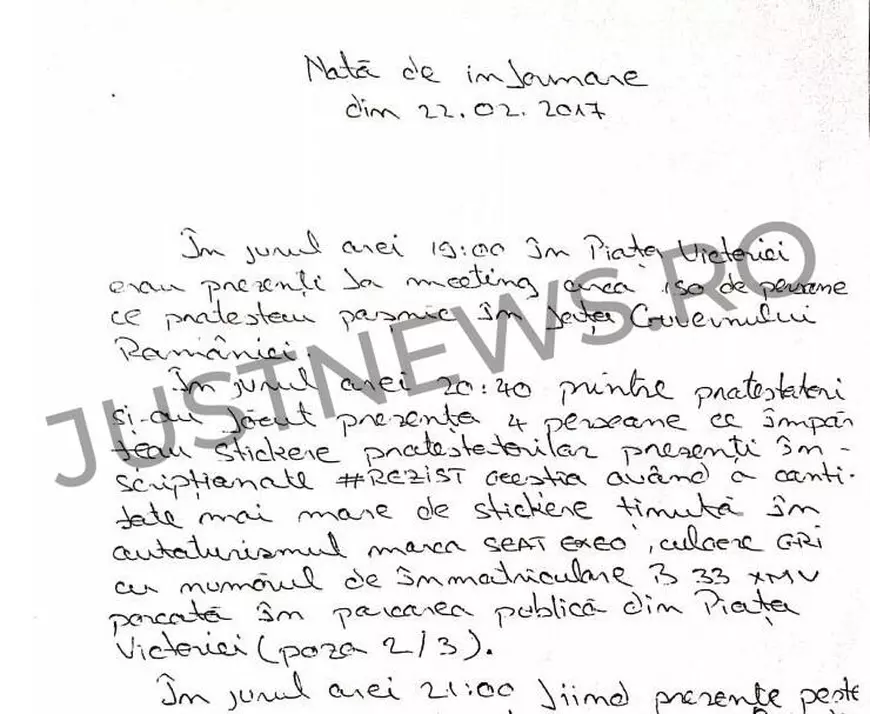 Notă de informare
din 22.02.2017
În jurul orei 19:00 în Piața Victoriei
erau prezenți la meeting circa 150 de persoane
ce protestau pașnic în fața Guvernului
României.
În jurul orei 20:40 printre protestatari
și-au făcut prezența 4 persoane ce împăr
țeau stickere protestatarilor prezenți în-
scripționate #REZIST aceștia având o canti-
tate mai mare de stickere ținută în
autoturismul marca SEAT EXEO, culoare GRI
cu numărul de înmatriculare B 33 XMV
parcată în parcarea publică din Piața
Victoriei (poza 2/3).
În jurul orei 21:00 fiind prezente peste
JUSTNEWS.RO